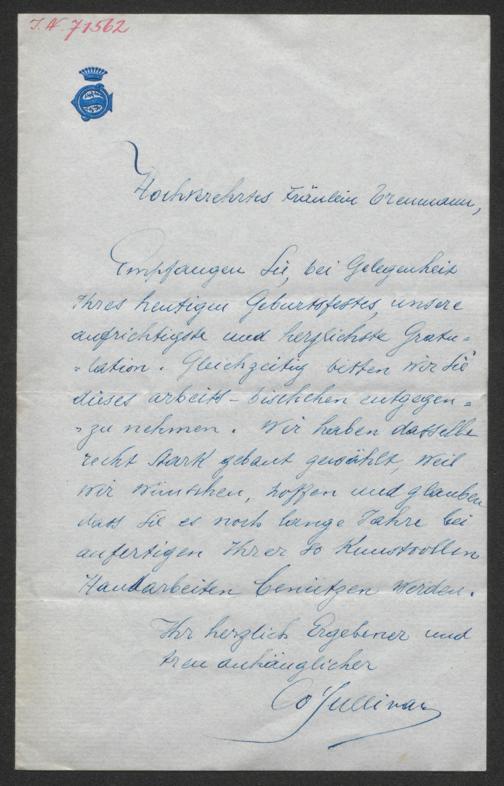 I. N. 71562
Hochverehrtes Fräulein
Empfangen Sie, bei Gelegenheit
Ihres heutigen Geburtsfestes, unsere
aufrichtigste und herzlichste Gratu=
=lation. Gleichzeitig bitten wir Sie
dieses arbeits-tischchen entgegen=
=zu nehmen. Wir haben dasselbe
recht stark gebaut gewählt, weil
wir wünschen, hoffen und glauben
dass Sie es noch lange Jahre bei
anfertigen Ihrer so kunstvollen
Handarbeiten benützen werden.
Ihr herzlich Ergebener und
treu anhänglicher
O'Sullivan